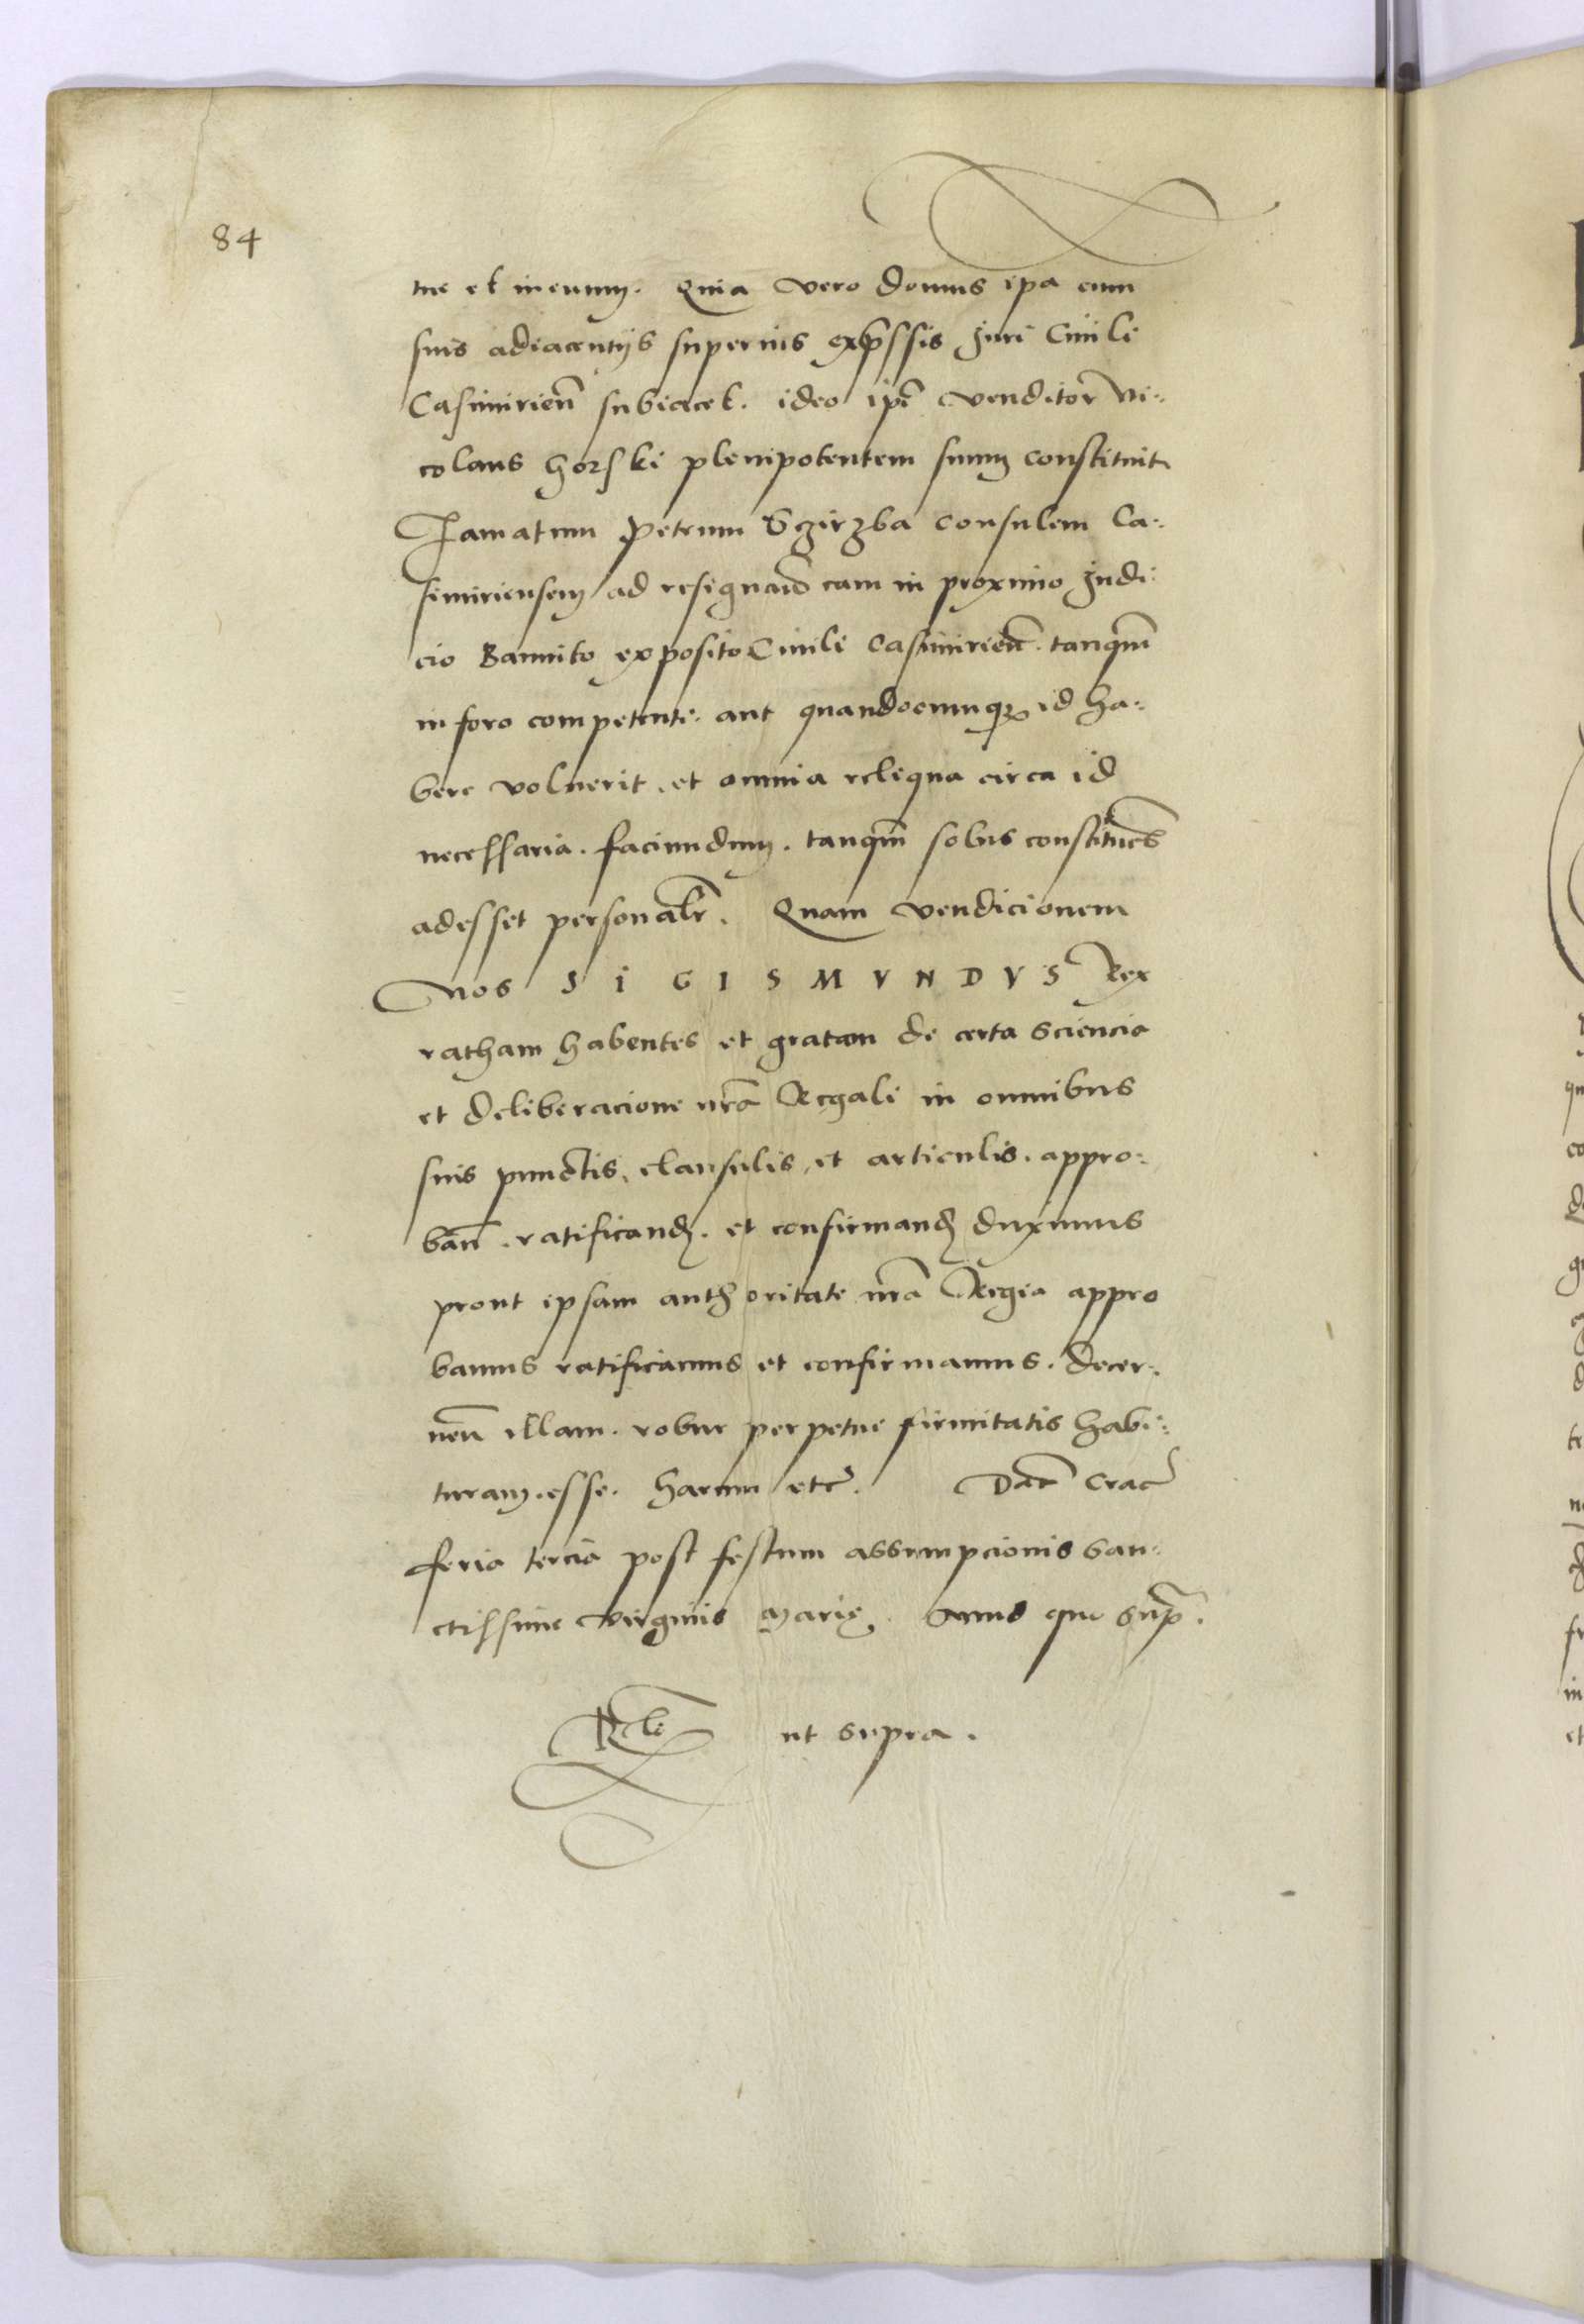 84
tue et in euum. Quia vero domus ipa cum
suis adiacentijs superius exp̄ssis Juri Ciuili
Casimirien̄ subiacet. ideo ip̄e venditor Ni:
colaus Horski plenipotentem suum constituit
Famatum Petrum Sczirzba Consulem Ca:
simiriensem ad resignand̄ eam in proximo Judi:
cio Bannito exposito Ciuili Casimirien̄. tanqm̄
in foro competente. aut quandocumqꝫ id ha:
bere voluerit. et omnia reliqua circa id
necessaria. faciendum. tanqm̄ solus constituēs
adesset personalr̄. Quam vendicionem
Nos S I G I S M V N D V S Rex
ratham habentes et gratam de certa sciencia
et deliberacione nrā Regali in omnibus
suis punctis, clausulis, et articulis. appro:
ban̄. ratificand̄. et confirmand̄ duximus
prout ipsam authoritate nrā Regia appro
bamus ratificamus et confirmamus. decer:
nen̄ illam. robur perpetue firmitatis habi:
turam. esse. Harum etc̄. Dat̄ Crac̄
feria tercia post festum assumpcionis san:
ctissime virginis Marię. Anno quo sup̄.
Rli ut supra.